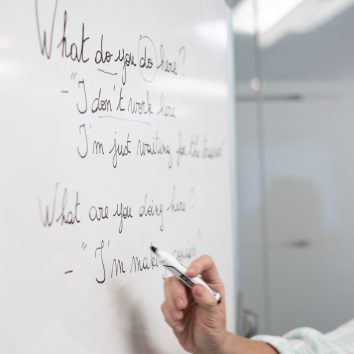 What do you do here?
- "I don't work here
I'm just waiting for the
What are you doing here?
- "I'm making